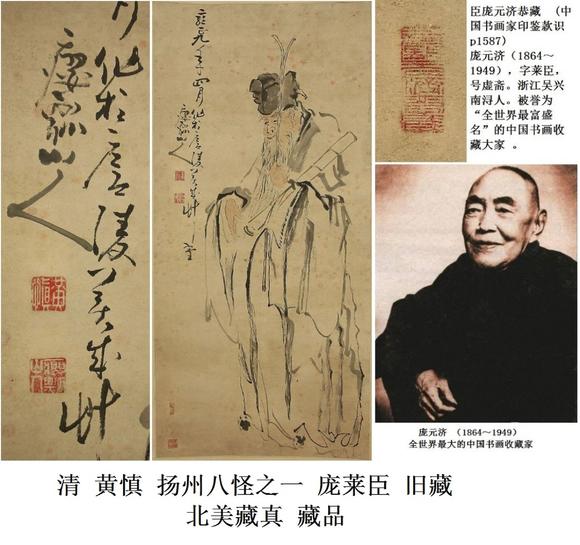 作於廣陵美成艸
癭瓢山人
年四月作於廣陵美成艸堂
癭瓢山人
臣庞元济恭藏 (中
国书画家印鉴款识
p1587)
庞元济(1864～
1949)，字莱臣，
号虚斋。浙江吴兴
南浔人。被誉为
“全世界最富盛
名”的中国书画收
藏大家 。
庞元济 (1864～1949)
全世界最大的中国书画收藏家
清 黄慎 扬州八怪之一 庞莱臣 旧藏
北美藏真 藏品